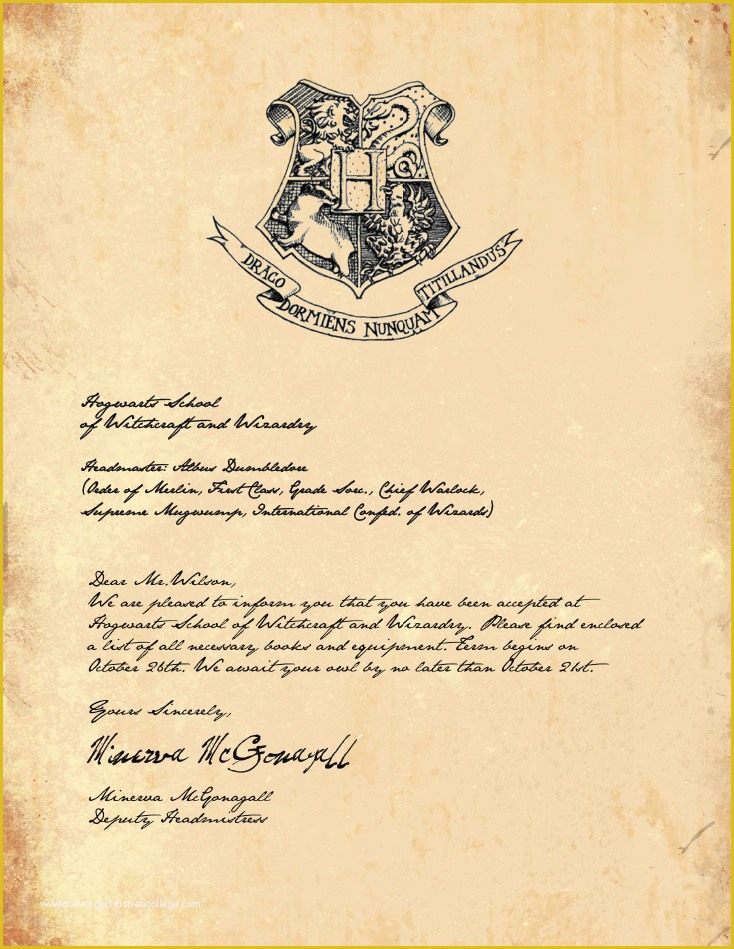 H
DRACO
DORMIENS NUNQUAM
TITILLANDUS
Hogwarts School
of Witchcraft and Wizardry
Headmaster: Albus Dumbledore
(Order of Merlin, First Class, Grade Sorc., Chief Warlock,
Supreme Mugwump, International Confed. of Wizards)
Dear Mr.Wilson,
We are pleased to inform you that you have been accepted at
Hogwarts School of Witchcraft and Wizardry. Please find enclosed
a list of all necessary books and equipment. Term begins on
October 26th. We await your owl by no later than October 21st.
Yours Sincerely,
Minerva McGonagall
Minerva McGonagall
Deputy Headmistress